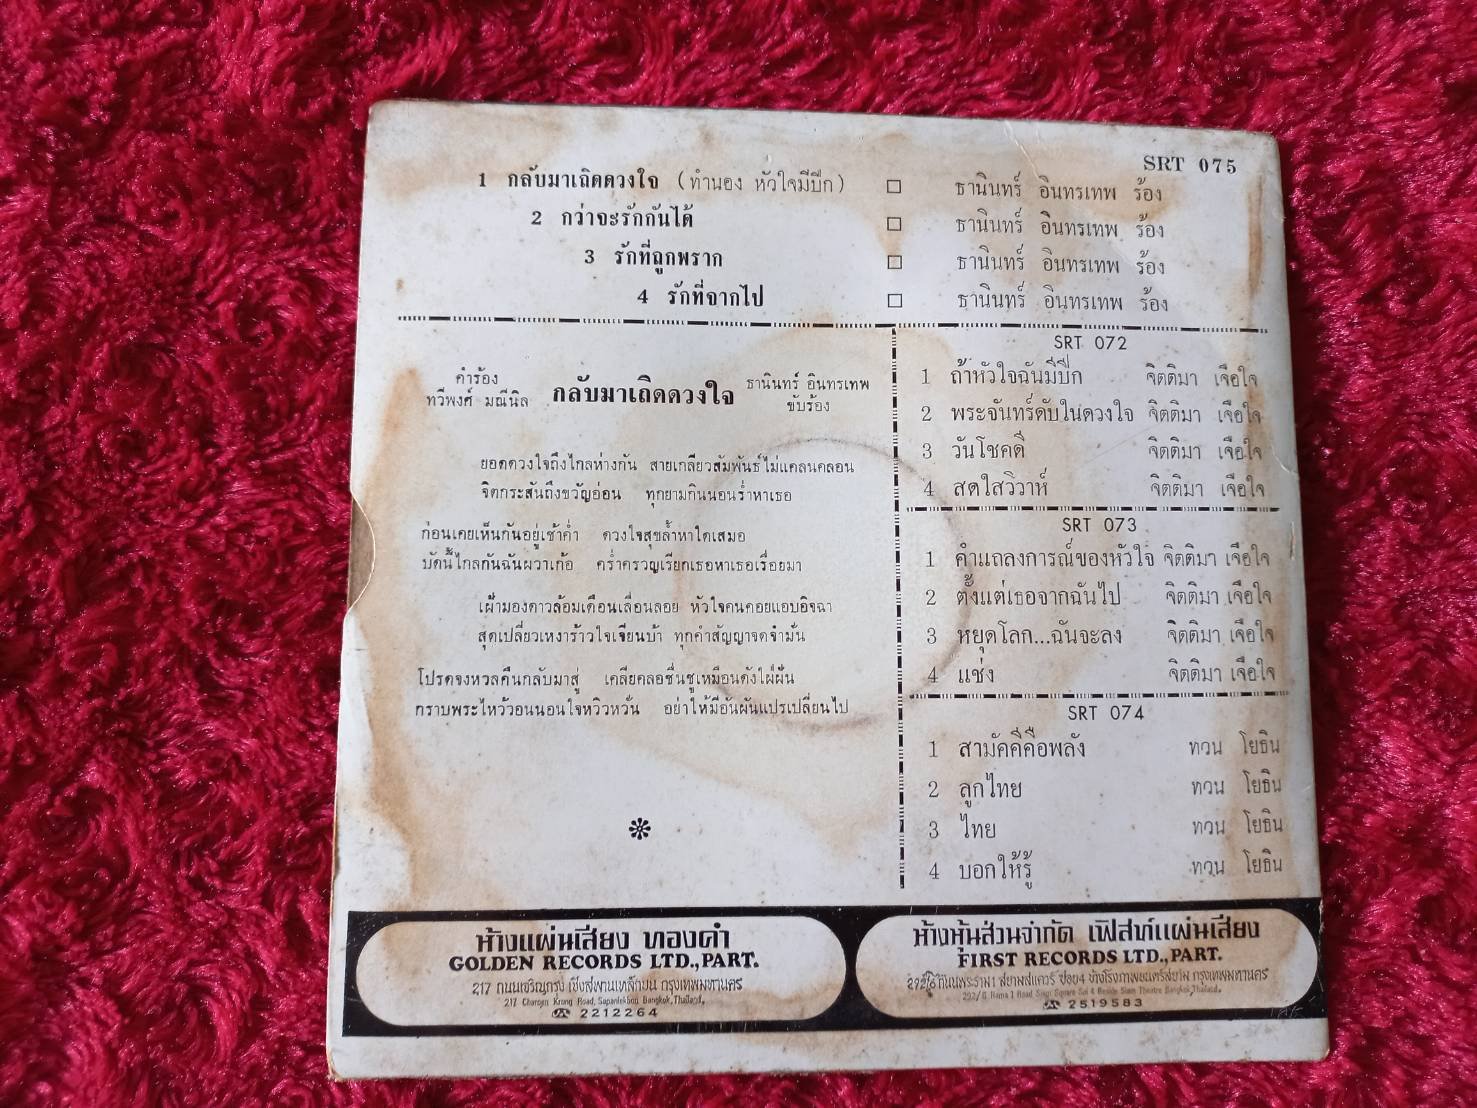 SRT 075
1 กลับมาเถิดดวงใจ (ทำนอง หัวใจมีปีก) □ ธานินทร์ อินทรเทพ ร้อง
2 กว่าจะรักกันได้ □ ธานินทร์ อินทรเทพ ร้อง
3 รักที่ถูกพราก □ ธานินทร์ อินทรเทพ ร้อง
4 รักที่จากไป □ ธานินทร์ อินทรเทพ ร้อง
คำร้อง
ทวีพงศ์ มณีนิล
กลับมาเถิดดวงใจ
ธานินทร์ อินทรเทพ
ขับร้อง
ยอดดวงใจถึงไกลห่างกัน สายเกลียวสัมพันธ์ไม่แคลนคลอน
จิตกระสันถึงขวัญอ่อน ทุกยามกินนอนร่ำหาเธอ
ก่อนเคยเห็นกันอยู่เช้าค่ำ ดวงใจสุขล้ำหาใดเสมอ
บัดนี้ไกลกันฉันผวาเก้อ คร่ำครวญเรียกเธอหาเธอเรื่อยมา
เฝ้ามองดาวล้อมเดือนเลื่อนลอย หัวใจคนคอยแอบอิจฉา
สุดเปลี่ยวเหงาร้าวใจเจียนบ้า ทุกคำสัญญาจดจำมั่น
โปรดจงหวลคืนกลับมาสู่ เคลียคลอชื่นชูเหมือนดังใฝ่ฝัน
กราบพระไหว้วอนนอนใจหวิวหวั่น อย่าให้มีอันผันแปรเปลี่ยนไป
SRT 072
1 ถ้าหัวใจฉันมีปีก จิตติมา เจือใจ
2 พระจันทร์ดับในดวงใจ จิตติมา เจือใจ
3 วันโชคดี จิตติมา เจือใจ
4 สดใสวิวาห์ จิตติมา เจือใจ
SRT 073
1 คำแถลงการณ์ของหัวใจ จิตติมา เจือใจ
2 ตั้งแต่เธอจากฉันไป จิตติมา เจือใจ
3 หยุดโลก...ฉันจะลง จิตติมา เจือใจ
4 แช่ง จิตติมา เจือใจ
SRT 074
1 สามัคคีคือพลัง ทวน โยธิน
2 ลูกไทย ทวน โยธิน
3 ไทย ทวน โยธิน
4 บอกให้รู้ ทวน โยธิน
ห้างแผ่นเสียง ทองคำ
GOLDEN RECORDS LTD.,PART.
217 ถนนเจริญกรุง เชิงสพานเหล็กบน กรุงเทพมหานคร
217 Charoen Krung Road, Sapanlekbon Bangkok,Thailand.
☎ 2212264
ห้างหุ้นส่วนจำกัด เฟิสท์แผ่นเสียง
FIRST RECORDS LTD., PART.
292/6 ถนนพระราม 1 สยามสแควร์ ซอย 4 ข้างโรงภาพยนตร์สยาม กรุงเทพมหานคร
292/6 Rama 1 Road Siam Square Soi 4 Beside Siam Theatre Bangkok,Thailand.
☎ 2519583